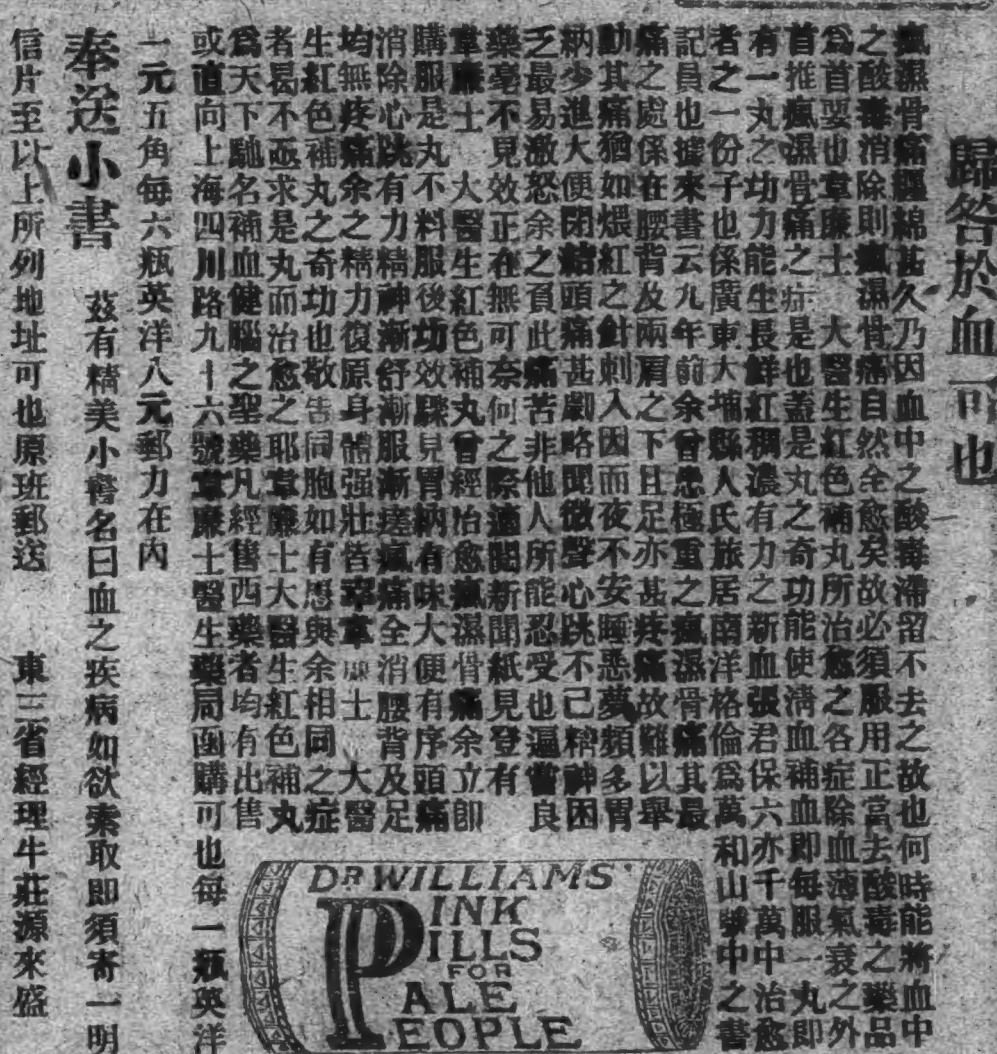 歸咎於血可也
瘋濕骨痛纏綿甚久乃因血中之酸毒滯留不去之故也何時能將血中
之酸毒消除則瘋濕骨痛自然全愈矣故必須服用正當去酸毒之藥品
爲首要也韋廉士　大醫生紅色補丸所治愈之各症除血薄氣衰之外
首推瘋濕骨痛之症是也蓋是丸之奇功能使淸血補血卽每服一丸卽
有一丸之功力能生長鮮紅稠濃有力之新血張君保六亦千萬中治愈
者之一份子也係廣東大埔縣人氏旅居南洋格倫爲萬和山號中之書
記員也據來書云九年前余曾患極重之瘋濕骨痛其最
痛之處係在腰背及兩肩之下且足亦甚疼痛故難以舉
動其痛猶如煨紅之針刺入因而夜不安睡惡夢頻多胃
納少進大便閉結頭痛甚劇略聞微聲心跳不已精神困
乏最易激怒余之負此痛苦非他人所能忍受也遍嘗良
藥毫不見效正在無可奈何之際適閱新聞紙見登有
韋廉士　大醫生紅色補丸曾經治愈瘋濕骨痛余立卽
購服是丸不料服後功效踪見胃納有味大便有序頭痛
消除心跳有力精神漸舒漸服漸瘥瘋痛全消腰背及足
均無疼痛余之精力復原身體强壯皆韋廉士　大醫
生紅色補丸之奇功也敬告同胞如有患與余相同之症
者曷不亟求是丸而治愈之耶韋廉士大醫生紅色補丸
爲天下馳名補血健腦之聖藥凡經售西藥者均有出售
或直向上海四川路九十六號韋廉士醫生藥局函購可也每一瓶英洋
一元五角每六瓶英洋八元郵力在內
奉送小書　茲有精美小書名曰血之疾病如欲索取卽須寄一明
信片至以上所列地址可也原班郵送　東三省經理牛莊源來盛
DR WILLIAMS'
PINK
PILLS
FOR
PALE
PEOPLE